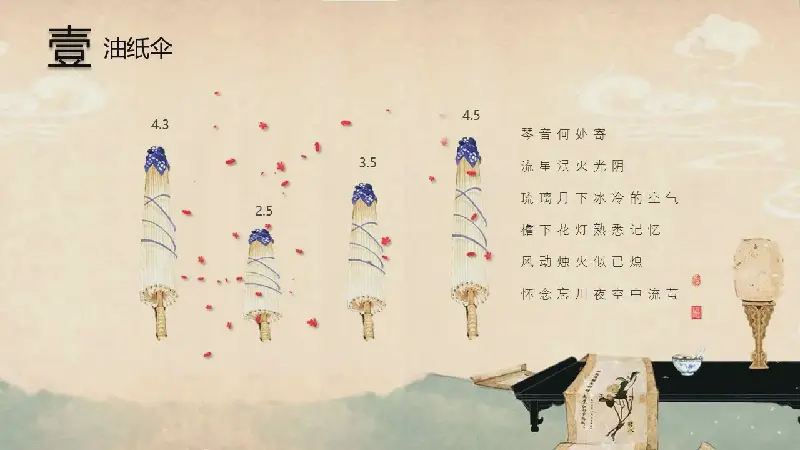 壹 油纸伞
4.3
2.5
3.5
4.5
琴音何处寄
流星泯火光阴
琉璃月下冰冷的空气
檐下花灯熟悉记忆
风动烛火似已熄
怀念忘川夜空中流萤